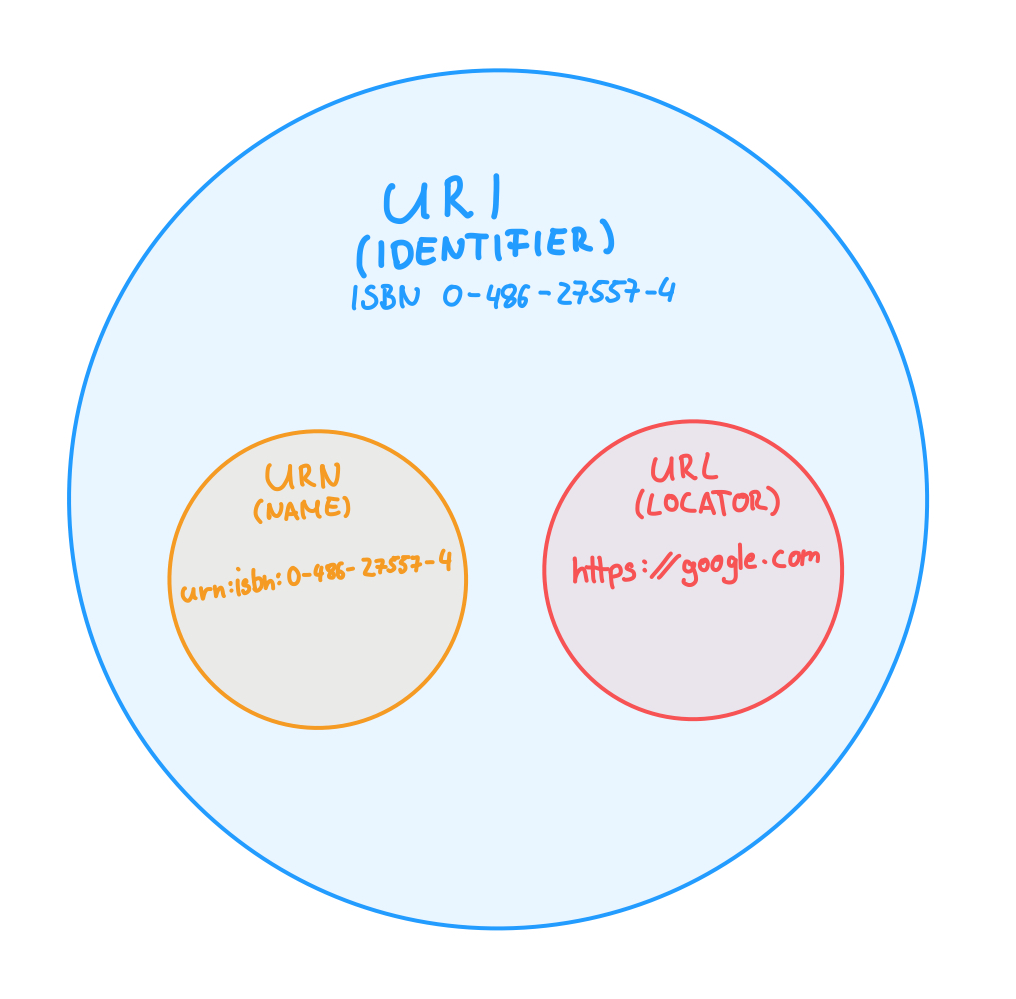 URI
(IDENTIFIER)
ISBN 0-486-27557-4
URN
(NAME)
urn:isbn:0-486-27557-4
URL
(LOCATOR)
https://google.com